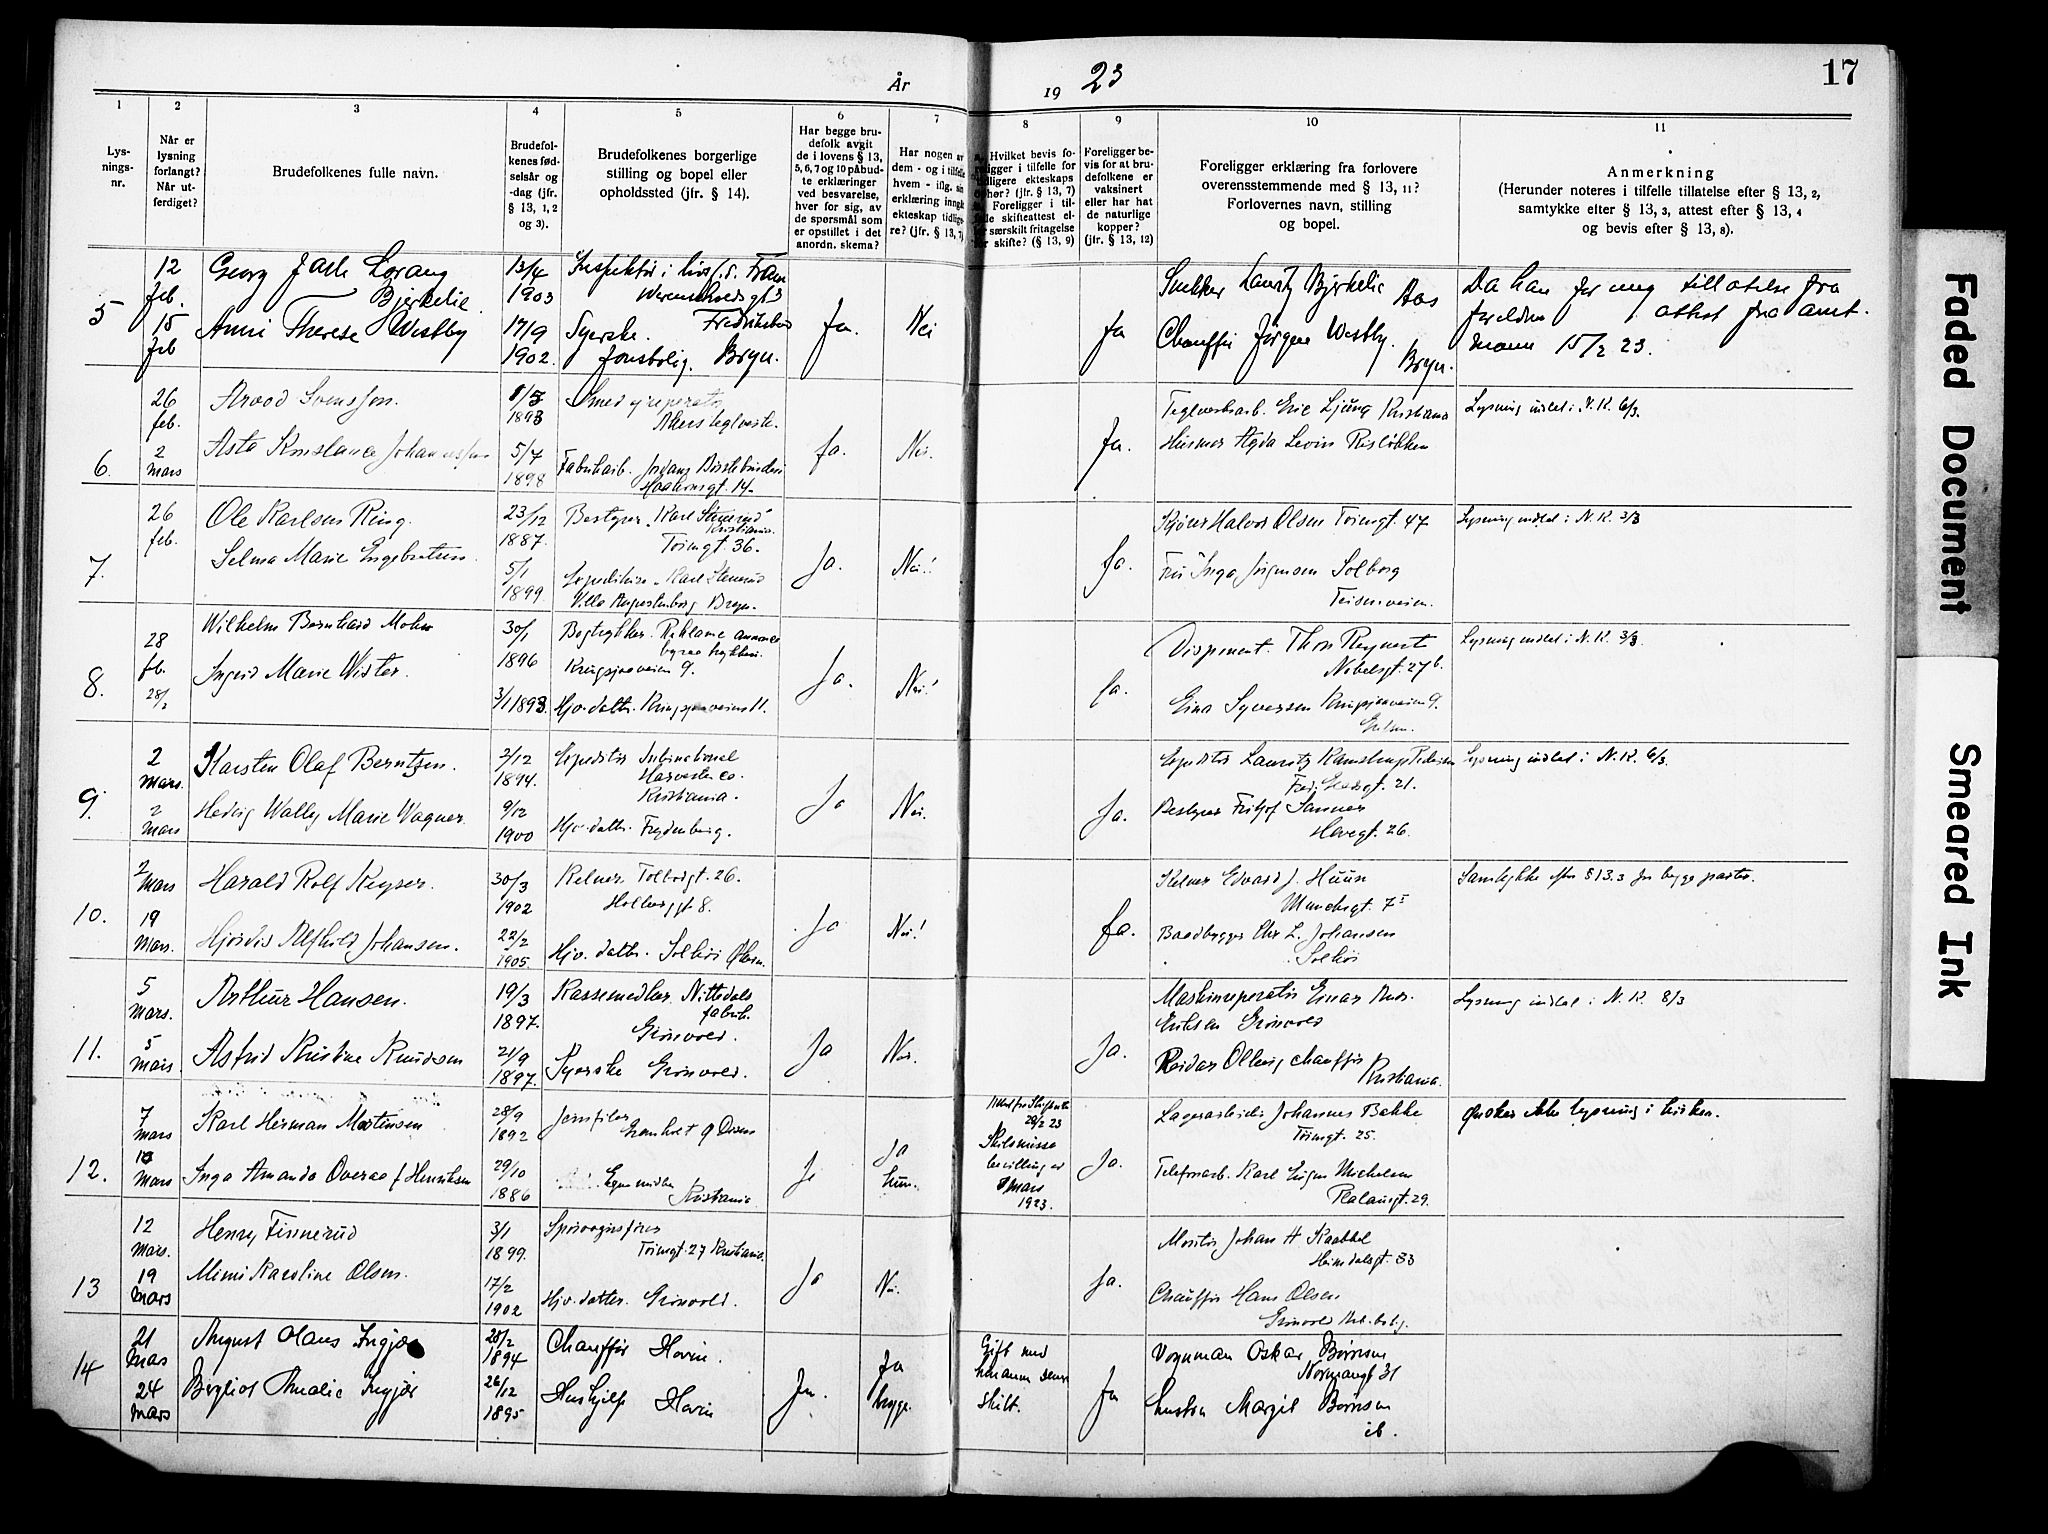 År 1923
17
1
2
3
4
5
6
7
8
9
10
11
Lys-
nings-
nr.
Når er
lysning
forlangt?
Når ut-
ferdiget?
Brudefolkenes fulle navn.
Brudefol-
kenes fød-
selsår og
-dag (jfr.
§ 13, 1, 2
og 3).
Brudefolkenes borgerlige
stilling og bopel eller
opholdssted (jfr. § 14).
Har begge bru-
defolk avgit
de i lovens § 13,
5, 6, 7 og 10 påbud-
te erklæringer
ved besvarelse,
hver for sig, av
de spørsmål som
er opstillet i det
anordn. skema?
Har nogen av
dem - og i tilfelle
hvem - iflg. sin
erklæring inngåt
ekteskap tidlige-
re? (jfr. § 13, 7)
Hvilket bevis fo-
religger i tilfelle for
tidligere ekteskaps
ophør? (jfr. § 13, 7)
Foreligger i til-
felle skifteattest el-
ler særskilt fritagelse
for skifte? (§ 13, 9)
Foreligger be-
vis for at bru-
defolkene er
vaksinert
eller har hat
de naturlige
kopper?
(jfr. § 13, 12)
Foreligger erklæring fra forlovere
overensstemmende med § 13, 11?
Forlovernes navn, stilling
og bopel.
Anmerkning
(Herunder noteres i tilfelle tillatelse efter § 13, 2,
samtykke efter § 13, 3, attest efter § 13, 4
og bevis efter § 13, 8).
5
12
feb.
15
feb
Georg Jarle Lorang
Bjerkelie
Anni Therese Westby
13/4
1903
17/9
1902.
Syerske.
Bryn.
Ja.
Nei
Ja
Snekker Lauritz Bjerkelie Aas
Chauffør Jörgen Westby.
Bryn.
Da han for ung tillatelse fra
foreldre attest fra amt.
mann 15/2 23.
6.
26
feb.
2
mars
Arvod Svensson.
Asta Konstance Johannessen
1893
5/7
1898
Smed
Akers teglverk.
Fabrikarb. Jordans Börstebinderi
14.
Ja.
Nei.
Ja.
Teglverksarb. Eric Ljung Kristiania
Husmor Agda Levin Risløkken
Lysning indtat i N.K. 6/3.
7.
26
feb.
Ole Karlsen Ring.
Selma Marie Engebretsen
23/12
1887.
5/1
1899
Bestyrer "Karl Stenerud"
Kristiania.
Töiengt. 36.
Karl Stenerud
Villa Augustenborg Bryn.
Ja.
Nei!
Ja.
Halvor Olsen Töiengt. 47
Fru Inga Jørgensen Solborg
Teisenveien.
Lysning indtat i N.K. 3/3
8.
28
fb.
28/2
Wilhelm Bernhard Mohr
Ingrid Marie Wister.
30/1
1896
3/1 1893.
Bogtrykker. Reklame annonce
byraa trykkeri.
Kringsjaaveien 9.
Hjv. datter. Kringsjaaveien 11.
Ja.
Nei!
Ja.
Disponent. Thor Reynert
Nobelsgt. 27 b.
Eina Syversen Kringsjaaveien 9.
Lysning indtat i N.K. 3/3.
9.
2
mars.
2
mars
Karsten Olaf Berntzen.
Hedvig Wally Marie Wagner.
2/12
1894.
9/12
1900
Expeditör International
Harvester co.
Kristiania.
Hjv. datter. Frydenberg.
Ja
Nei.
Ja.
Expeditör Lauritz Ramstrup Pedersen
21.
Bestyrer Fritjof Sanner
Havegt. 26.
Lysning indtat i N.K. 6/3.
10.
2
mars
19
mars.
Harald Rolf Keyser.
Hjördis Alfhild Johansen.
30/3
1902
22/2
1905.
Kelner. Tolbodgt. 26.
Holbergsgt 8.
Hjv. datter.
Ja
Nei!
Ja.
Kelner Edvard J. Huun
Munchsgt. 7 I
Baadbygger Chr L. Johansen
Samtykke efter § 13.3 for begge parter.
11.
5
mars.
5
mars.
Arthur Hansen.
Astrid Kristine Knudsen
19/3
1897.
21/9
1897.
Kassemedhj. Nittedals
fabrik.
Grönvold.
Syerske Grönvold.
Ja
Nei.
Ja.
Maskinreperatör Einar And.
Eriksen Grönvold
Reidar Olberg, chauffør
Kristiania.
Lysning indtat i N.K. 8/3
12.
7
mars
mars
Karl Herman Mortensen
Inga Amanda Overaa f Henriksen
28/9
1892
29/10
1886
Jernfiler
Egne midler
Kristiania
Ja
Ja
hun.
28/2 23
Skilsmisse
bevilling av
8 mars
1923.
Ja.
Lagerarbeider Johannes Bakke
Töiengt. 25.
Telefonarb. Karl Eugen Michelsen
29.
Ønsker ikke lysning i kirken.
13
12
mars.
19
mars
Henry Finnerud
Mimi Karoline Olsen.
3/1
1899.
17/2
1902
Sporvognsförer
Töiengt. 27 Kristiania.
Hjv. datter. Grönvold.
Ja
Nei.
Ja.
Montör Johan H Kaabbel
Heimdalsgt. 33
Chauffør Hans Olsen
Grönvold
14
21
mars
24
mars
August Olaus Ingjær
Bergliot Amalie Ingjær
20/2
1894
26/12
1895
Chauffør Hovin.
Hushjelp Hovin
Ja.
Ja
begge.
Gift med
hinannen
skilt.
Ja
Vognman Oskar Börresen
31
hustru Margit Börresen
ib.
Faded Document
Smeared Ink